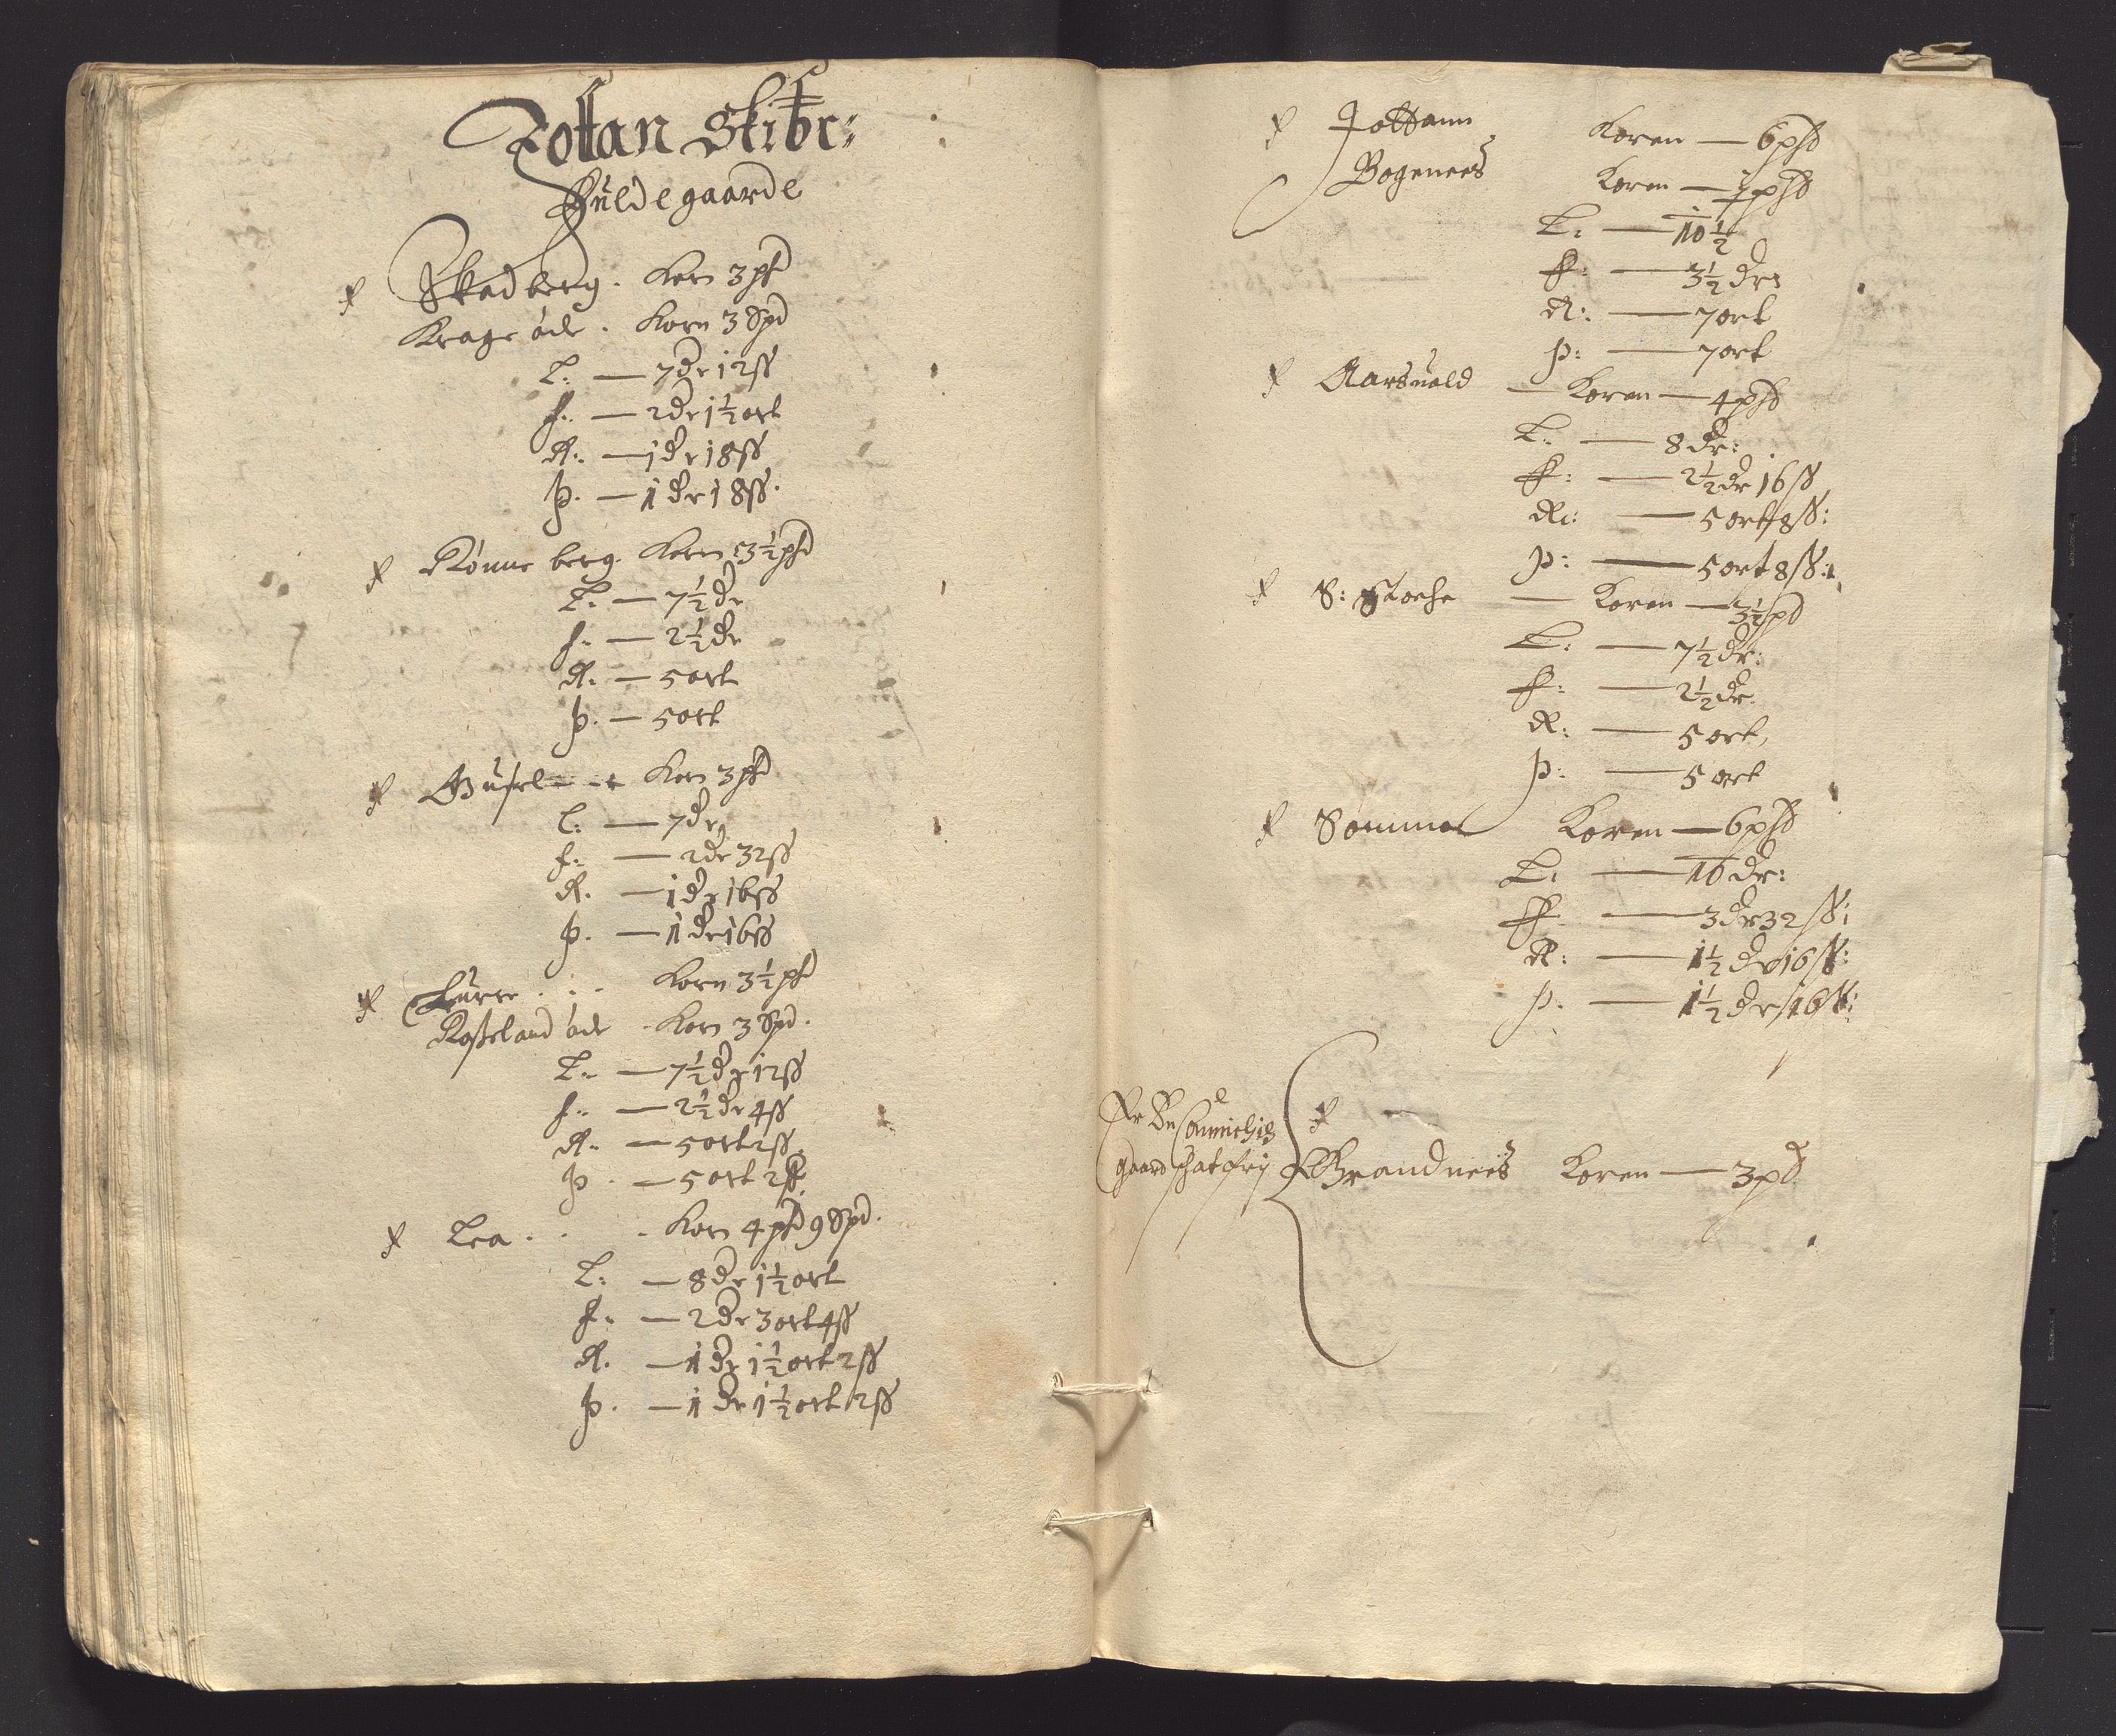 Jottan Skibr:
Fulde gaarde
Skadberg. Korn 3 pd
Krage øde. Korn 3 Spd
L: — 7 dr 12 ß
f: — 2 dr 1½ ort
R: — 1 dr 18 ß
Þ. — 1 dr 18 ß.
Rønne berg. Korn 3½ pd
L: — 7½ dr
f: — 2½ dr
R: — 5 ort
Þ. — 5 ort
Korn 3 pd
L: — 7 dr
f: — 2 dr 32 ß
R. — 1 dr 16 ß
Þ. — 1 dr 16 ß
Lurre . . . Korn 3½ pd
Roßeland øde . Korn 3 Spd.
L: — 7½ dr 12 ß
f: — 2½ dr 4 ß
R. — 5 ort 2 ß
Þ. — 5 ort 2 ß
Lea . . . Korn 4 pd 9 Spd.
L: — 8 dr 1½ ort
f: — 2 dr 3 ort 4 ß
R. — 1 dr 1½ ort 2 ß
Þ. — 1 dr 1½ ort 2 ß
Jottann Koren — 6 pd
Bogenees Koren — pd
L: — 10½
f: — 3½ dr
R: — 7 ort
Þ: — 7 ort
Aarsuold — Koren — 4 pd
L: — 8 dr:
f: — 2½ dr 16 ß
R: — 5 ort 8 ß:
Þ: — 5 ort 8 ß:
S: Stoche — Koren — 3½ pd
L: — 7½ dr:
f: — 2½ dr.
R: — 5 ort,
Þ: — 5 ort
Sømme Koren — 6 pd
L: — 10 dr:
f: — 3 dr 32 ß:
R: — 1½ dr 16 ß:
Þ. — 1½ dr 16 ß:
gaard schatfrij Brandnees Koren — 3 pd